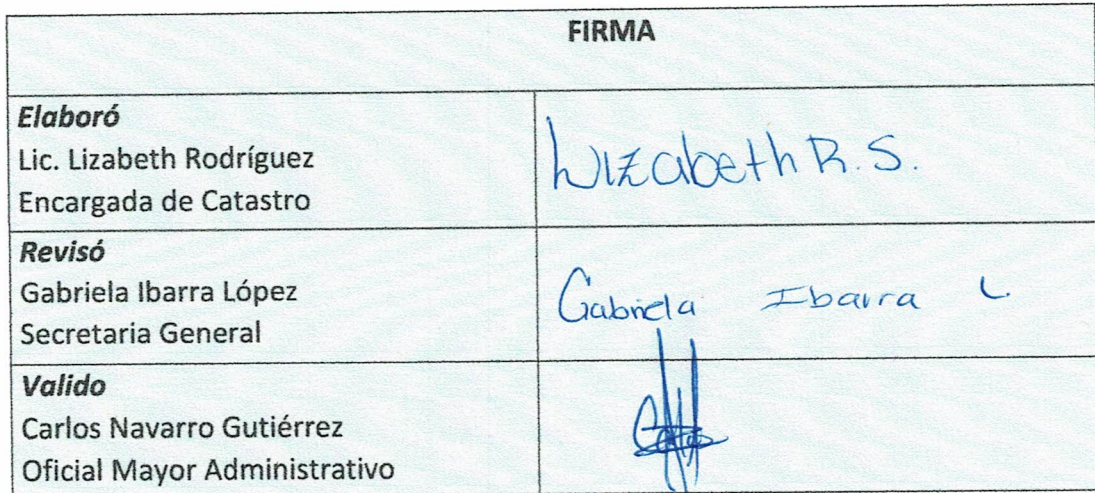 FIRMA
Elaboró
Lic. Lizabeth Rodríguez
Encargada de Catastro
Lizabeth R. S.
Revisó
Gabriela Ibarra López
Secretaria General
Gabriela Ibarra L
Valido
Carlos Navarro Gutiérrez
Oficial Mayor Administrativo